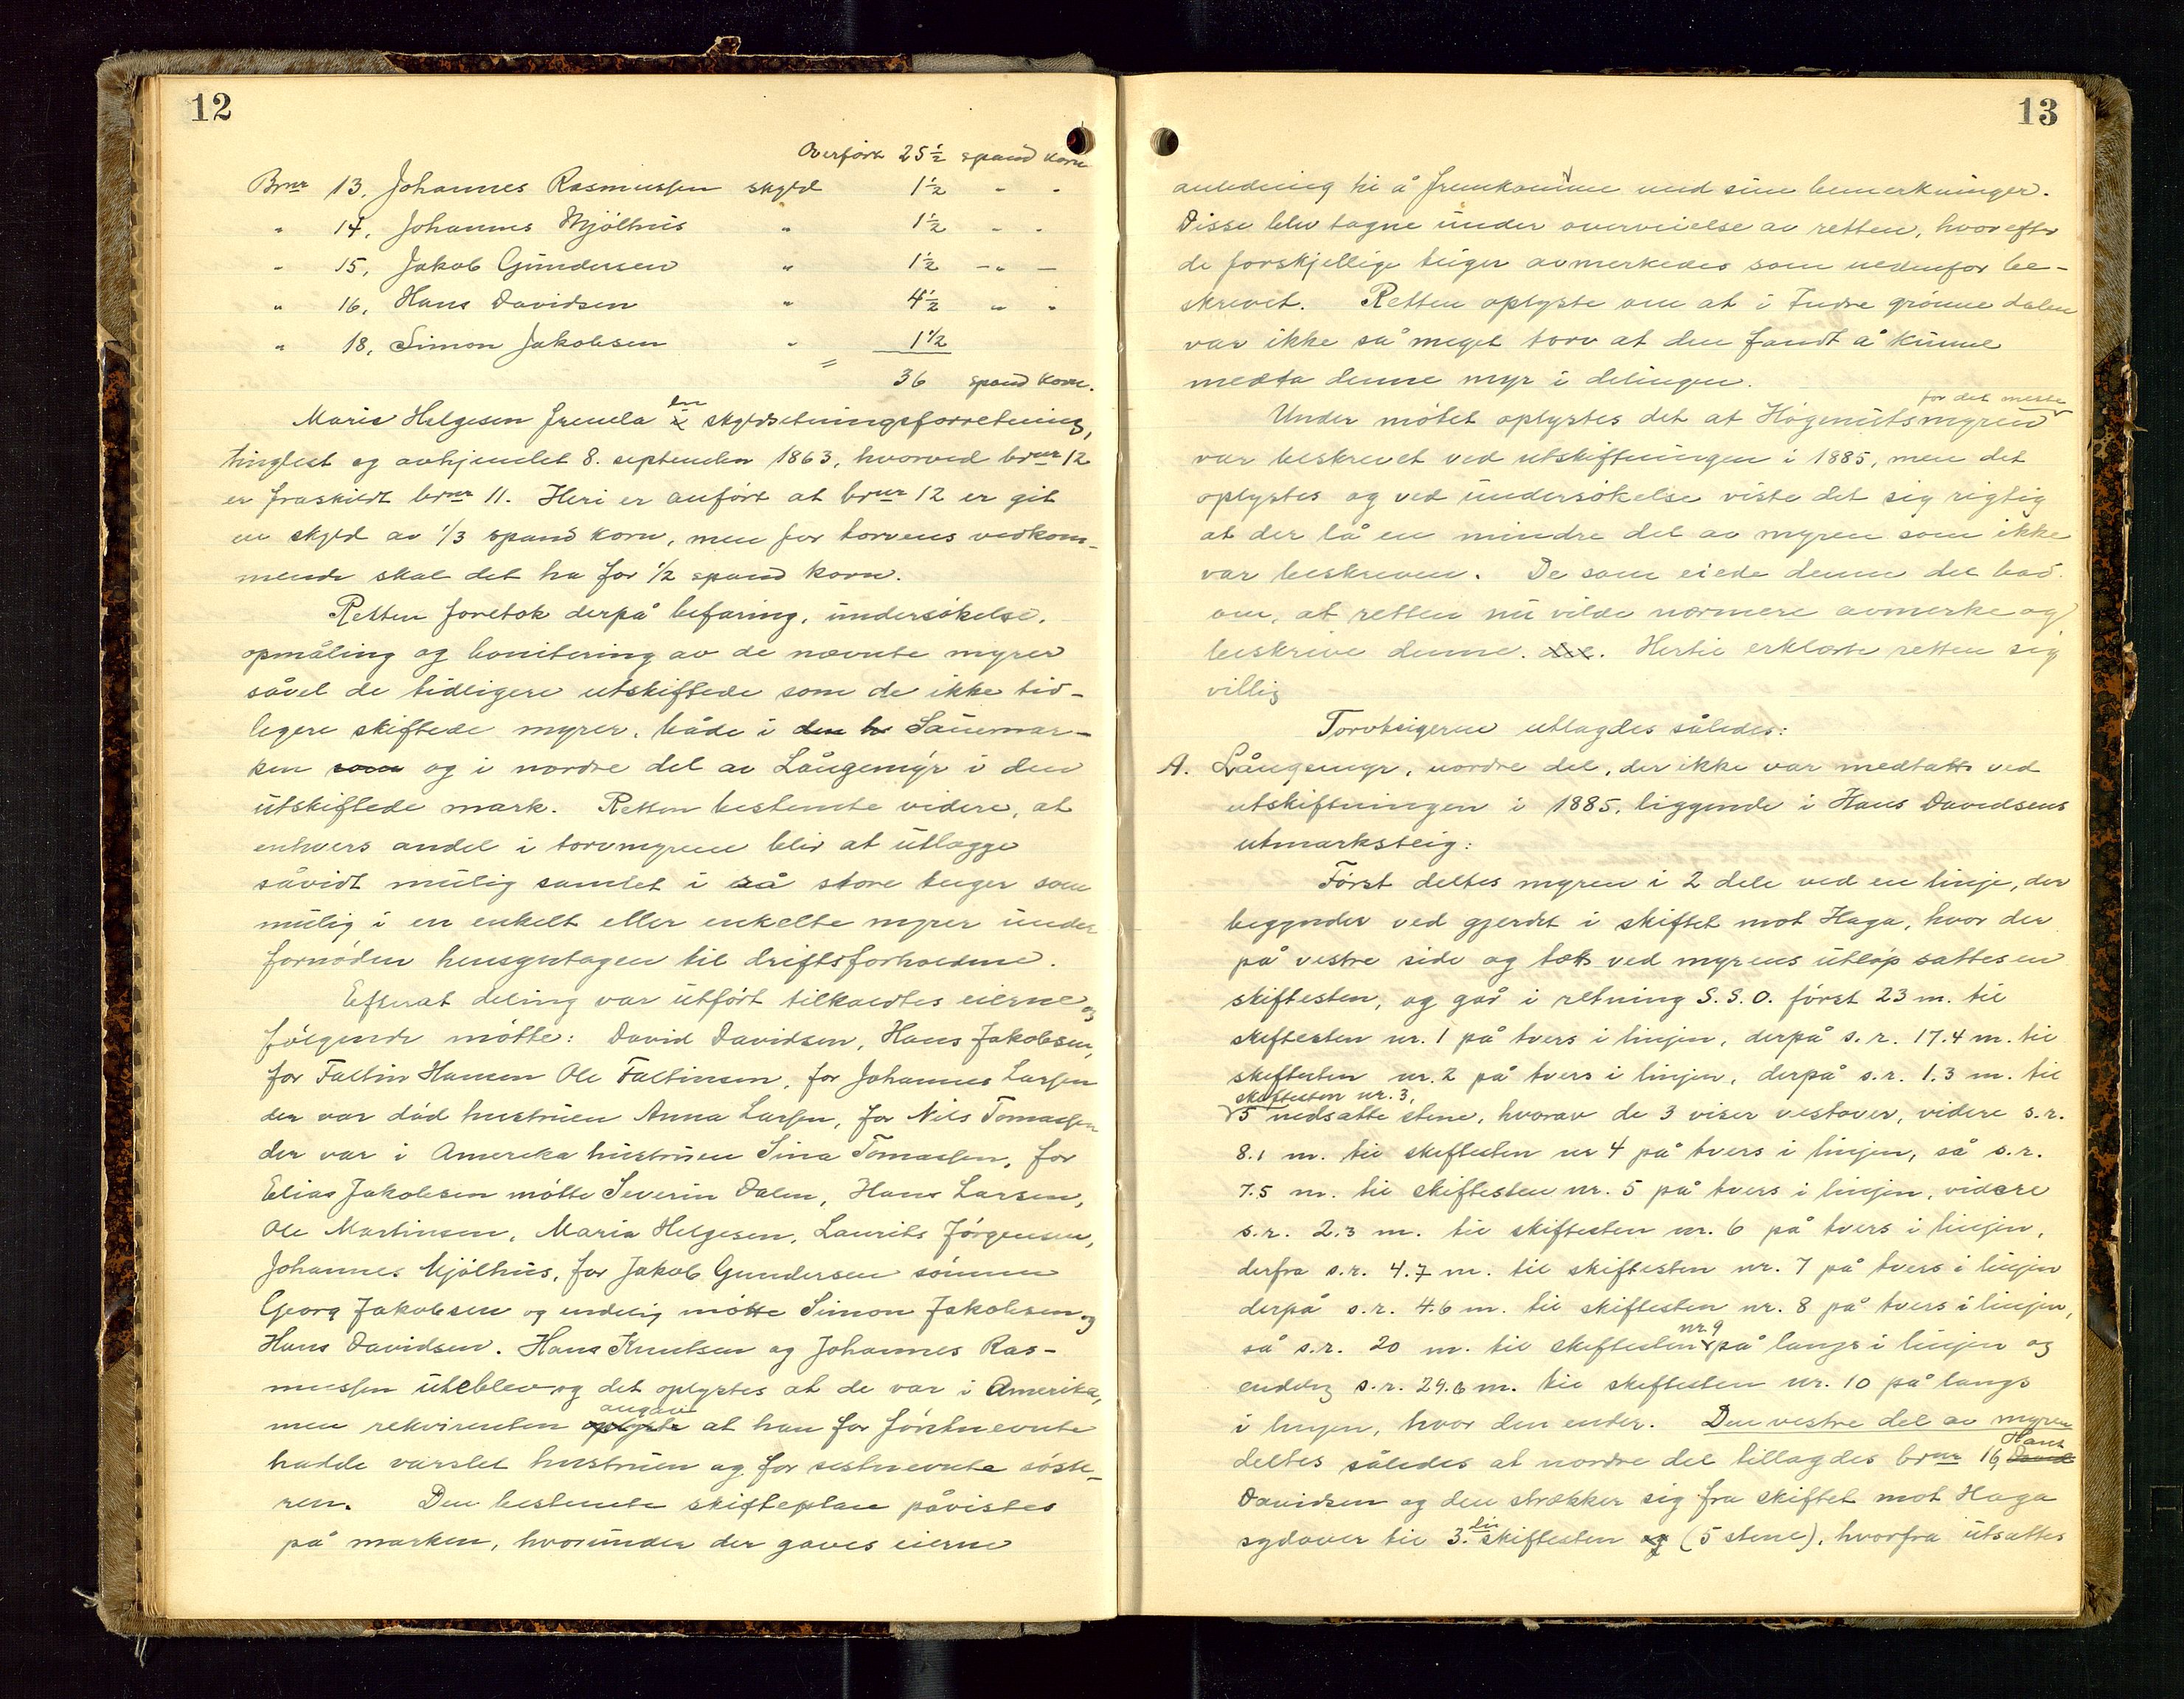 12
Overført 25½ spand korn
Brnr 13. Johannes Rasmussen skyld 1½ - -
" 14. Johannes Mjölhus " 1½ - -
" 15. Jakob Gundersen " 1½ - " -
" 16. Hans Davidsen " 4½ " "
" 18. Simon Jakobsen " 1½
= 36 spand korn.
Marie Helgesen fremla en skyldsetningsforretning,
tinglest og avhjemlet 8. september 1863, hvorved brnr 12
er fraskildt brnr 11. Heri er anført at brnr 12 er git
en skyld av 1/3 spand korn, men for torvens vedkom-
mende skal det ha for 1/2 spand korn.
Retten foretok derpå befaring, undersökelse,
opmåling og bonitering av de nævnte myrer
såvel de tidligere utskiftede som de ikke tid-
ligere skiftede myrer, både i den h Sauemar-
ken som og i nordre del av Långemyr i den
utskiftede mark. Retten bestemte videre, at
enhvers andel i torvmyrene blir at utlægge
såvidt mulig samlet i så store teiger som
mulig i en enkelt eller enkelte myrer under
fornöden hensyntagen til driftsforholdene.
Efterat deling var utført tilkaldtes eierne og
følgende møtte: David Davidsen, Hans Jakobsen,
for Faltin Hansen Ole Faltinsen, for Johannes Larsen
der var död hustruen Anna Larsen, for Nils Tomassen
der var i Amerika hustruen Sina Tomassen, for
Elias Jakobsen mötte Severin Dalen, Hans Larsen,
Ole Martinsen, Maria Helgesen, Laurits Jörgensen,
Johannes Mjölhus, for Jakob Gundersen sönnen
Georg Jakobsen og endelig mötte Simon Jakobsen og
Hans Davidsen. Hans Knutsen og Johannes Ras-
mussen uteblev og det oplystes at de var i Amerika,
angav
men rekvirenten oplyste at han for förstnevnte
hadde varslet hustruen og for sistnevnte söste-
ren. Den bestemte skifteplan påvistes
på marken, hvorunder der gaves eierne
13
anledning til å fremkomme med sine bemerkninger.
Disse blev tagne under overveielse av retten, hvorefter
de forskjellige teiger avmerkedes som nedenfor be-
skrevet. Retten oplyste om at i Indre grönne dalen
var ikke så meget torv at den fandt å kunne
medta denne myr i delingen.
for det meste
Under mötet oplystes det at Högenutsmyren
var beskrevet ved utskiftningen i 1885, men det
oplystes og ved undersökelse viste det sig rigtig
at der lå en mindre del av myren som ikke
var beskreven. De som eiede denne del bad
om, at retten nu vilde nærmere avmerke og
beskrive denne. Hertil erklærte retten sig
villig
Torvteigerne utlagdes således:
A. Långemyr, nordre del, der ikke var medtatt ved
utskiftningen i 1885, liggende i Hans Davidsens
utmarksteig:
Först deltes myren i 2 dele ved en linje, der
begynder ved gjerdet i skiftet mot Haga, hvor der
på vestre side og tæt ved myrens utlöp sattes en
skiftesten, og går i retning S.S.O. först 23 m. til
skiftesten nr. 1 på tvers i linjen, derpå s.r. 17.4 m. til
skiftesten nr. 2 på tvers i linjen, derpå s.r. 1.3 m. til
skiftesten nr. 3,
5 nedsatte stene, hvorav de 3 viser vestover, videre s.r.
8.1 m. til skiftesten nr 4 på tvers i linjen, så s.r.
7.5 m. til skiftesten nr. 5 på tvers i linjen, videre
s.r. 2.3 m. til skiftesten nr. 6 på tvers i linjen,
derfra s.r. 4.7 m. til skiftesten nr. 7 på tvers i linjen
derpå s.r. 4.6 m. til skiftesten nr. 8 på tvers i linjen,
så s.r. 20 m. til skiftesten nr. 9 på langs i linjen og
endelig s.r. 29.6 m. til skiftesten nr. 10 på langs
i linjen, hvor den ender. Den vestre del av myren
Hans
deltes således at nordre del tillagdes brnr 16, David
Davidsen og den strækker sig fra skiftet mot Haga
sydover til 3.die skiftesten og (5 stene), hvorfra utsattes